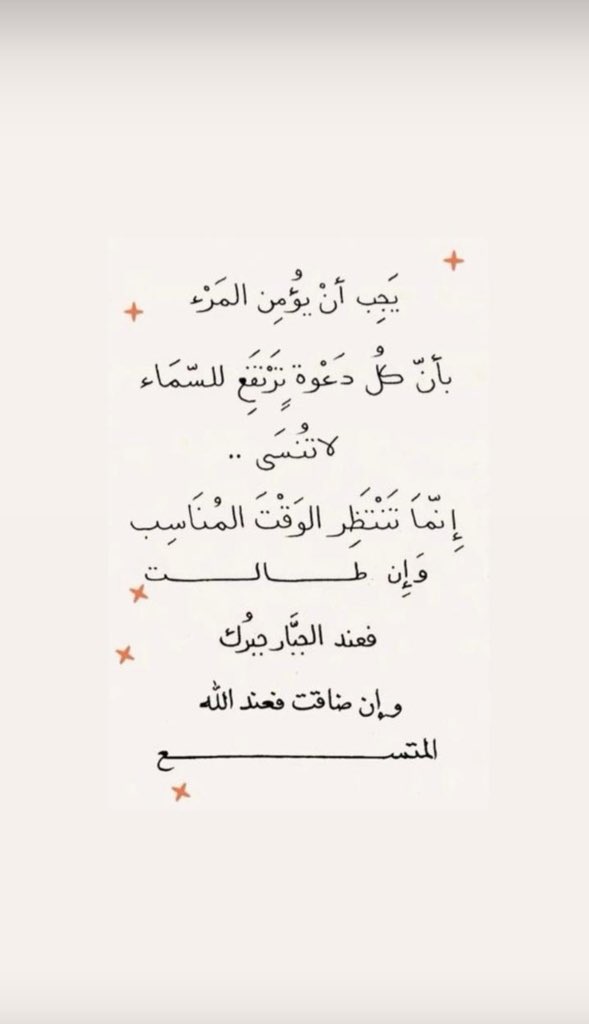 يَجِب أنْ يُؤْمِن المَرْء
بأنّ كُل دَعْوة تَرْتَفَعِ للسّمَاء
لاتُنْسَى ..
إِنّمَا تَنْتَظِر الوَقْتَ المُنَاسِب
وَإِن طـــالـــت
فعند الجبَّار جبرُك
وإن ضاقت فعند الله
المتســـــــــع